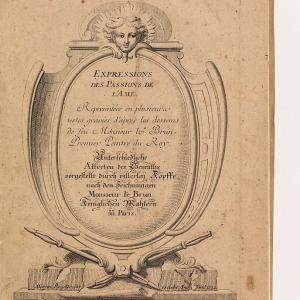 EXPRESSIONS
DES PASSIONS DE
L'AME.
Représentées en plusieurs
testes gravées d'après les desseins
de feu Monsieur le Brun,
Premier Peintre du Roy.
Unterschiedliche
Affecten des Gemüths
vorgestellt durch
Köpffe
nach den Zeichnungen
Monsieur le Brun
Königlichen Mahlern
zu Paris.